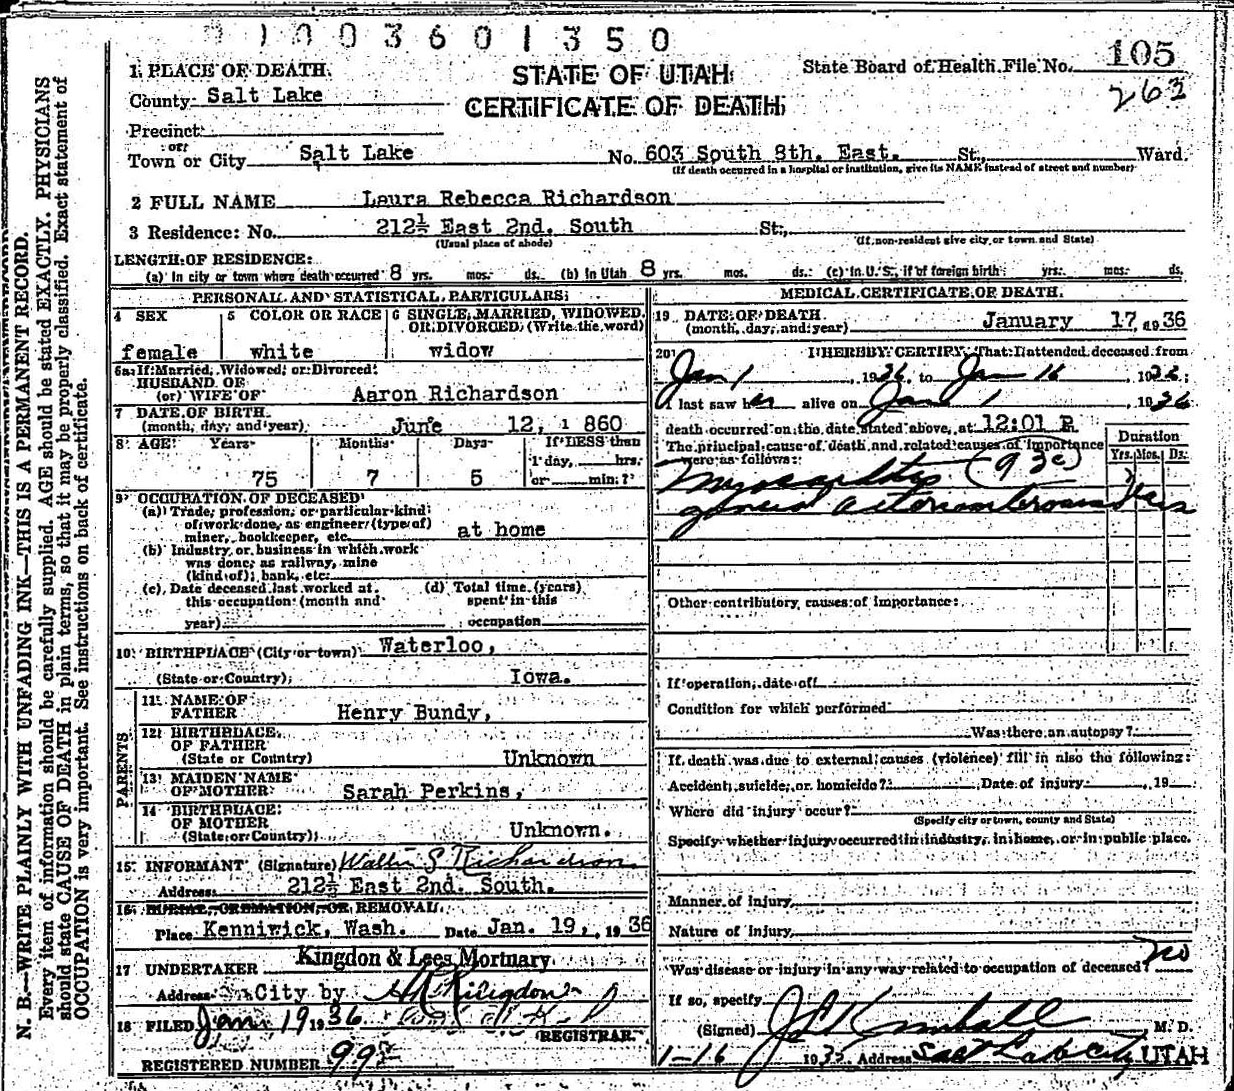 1003601350
1. PLACE OF DEATH
STATE OF UTAH
State Board of Health File No. 105
County Salt Lake
CERTIFICATE OF DEATH
263
Precinct
or
Town or City Salt Lake No. 603 South 8th. East. St., Ward.
(If death occurred in a hospital or institution, give its NAME instead of street and number)
2 FULL NAME Laura Rebecca Richardson
3 Residence: No. 212½ East 2nd. South St.,
(Usual place of abode) (If non-resident give city or town and State)
LENGTH OF RESIDENCE:
(a) In city or town where death occurred 8 yrs. mos. ds. (b) in Utah 8 yrs. mos. ds. (c) in U.S., if of foreign birth yrs. mos. ds.
PERSONAL AND STATISTICAL PARTICULARS
4 SEX 5 COLOR OR RACE 6 SINGLE, MARRIED, WIDOWED, OR DIVORCED, (Write the word)
female white widow
6a If Married, Widowed, or Divorced
HUSBAND OF
(or) WIFE OF Aaron Richardson
7 DATE OF BIRTH
(month, day, and year) June 12, 1860
8 AGE Years Months Days If LESS than
1 day, hrs.
75 7 5 or min.?
9 OCCUPATION OF DECEASED
(a) Trade, profession, or particular kind
of work done, as engineer (type of)
miner, bookkeeper, etc. at home
(b) Industry or business in which work
was done, as railway, mine
(kind of), bank, etc.
(c) Date deceased last worked at (d) Total time (years)
this occupation (month and spent in this
year) occupation
10 BIRTHPLACE (City or town) Waterloo,
(State or Country) Iowa.
PARENTS
11 NAME OF
FATHER Henry Bundy,
12 BIRTHPLACE
OF FATHER
(State or Country) Unknown
13 MAIDEN NAME
OF MOTHER Sarah Perkins,
14 BIRTHPLACE
OF MOTHER
(State or Country) Unknown.
15 INFORMANT (Signature) Walter S Richardson
Address 212½ East 2nd. South.
16 BURIAL, CREMATION, OR REMOVAL
Place Kenniwick, Wash. Date Jan. 19, 1936
17 UNDERTAKER Kingdon & Lees Mortuary
Address City by
18 FILED Jan 19 1936
REGISTRAR
REGISTERED NUMBER
MEDICAL CERTIFICATE OF DEATH
19 DATE OF DEATH
(month, day, and year) January 17, 1936
20 I HEREBY CERTIFY, That I attended deceased from
Jan 1, 1936, to Jan 16, 1936;
I last saw her alive on Jan 1, 1936
death occurred on the date stated above, at 12:01 P
The principal cause of death and related causes of importance
were as follows:
Duration
Yrs. Mos. Ds.
Myocarditis (93c)
general
Other contributory causes of importance:
If operation, date of
Condition for which performed
Was there an autopsy?
If death was due to external causes (violence) fill in also the following:
Accident, suicide, or homicide? Date of injury , 19
Where did injury occur?
(Specify city or town, county and State)
Specify whether injury occurred in industry, in home, or in public place.
Manner of injury
Nature of injury
Was disease or injury in any way related to occupation of deceased? no
If so, specify
(Signed) J L Kimball M. D.
1-16 193 Address Salt Lake City UTAH
N. B.—WRITE PLAINLY WITH UNFADING INK—THIS IS A PERMANENT RECORD.
Every item of information should be carefully supplied. AGE should be stated EXACTLY. PHYSICIANS
should state CAUSE OF DEATH in plain terms, so that it may be properly classified. Exact statement of
OCCUPATION is very important. See instructions on back of certificate.